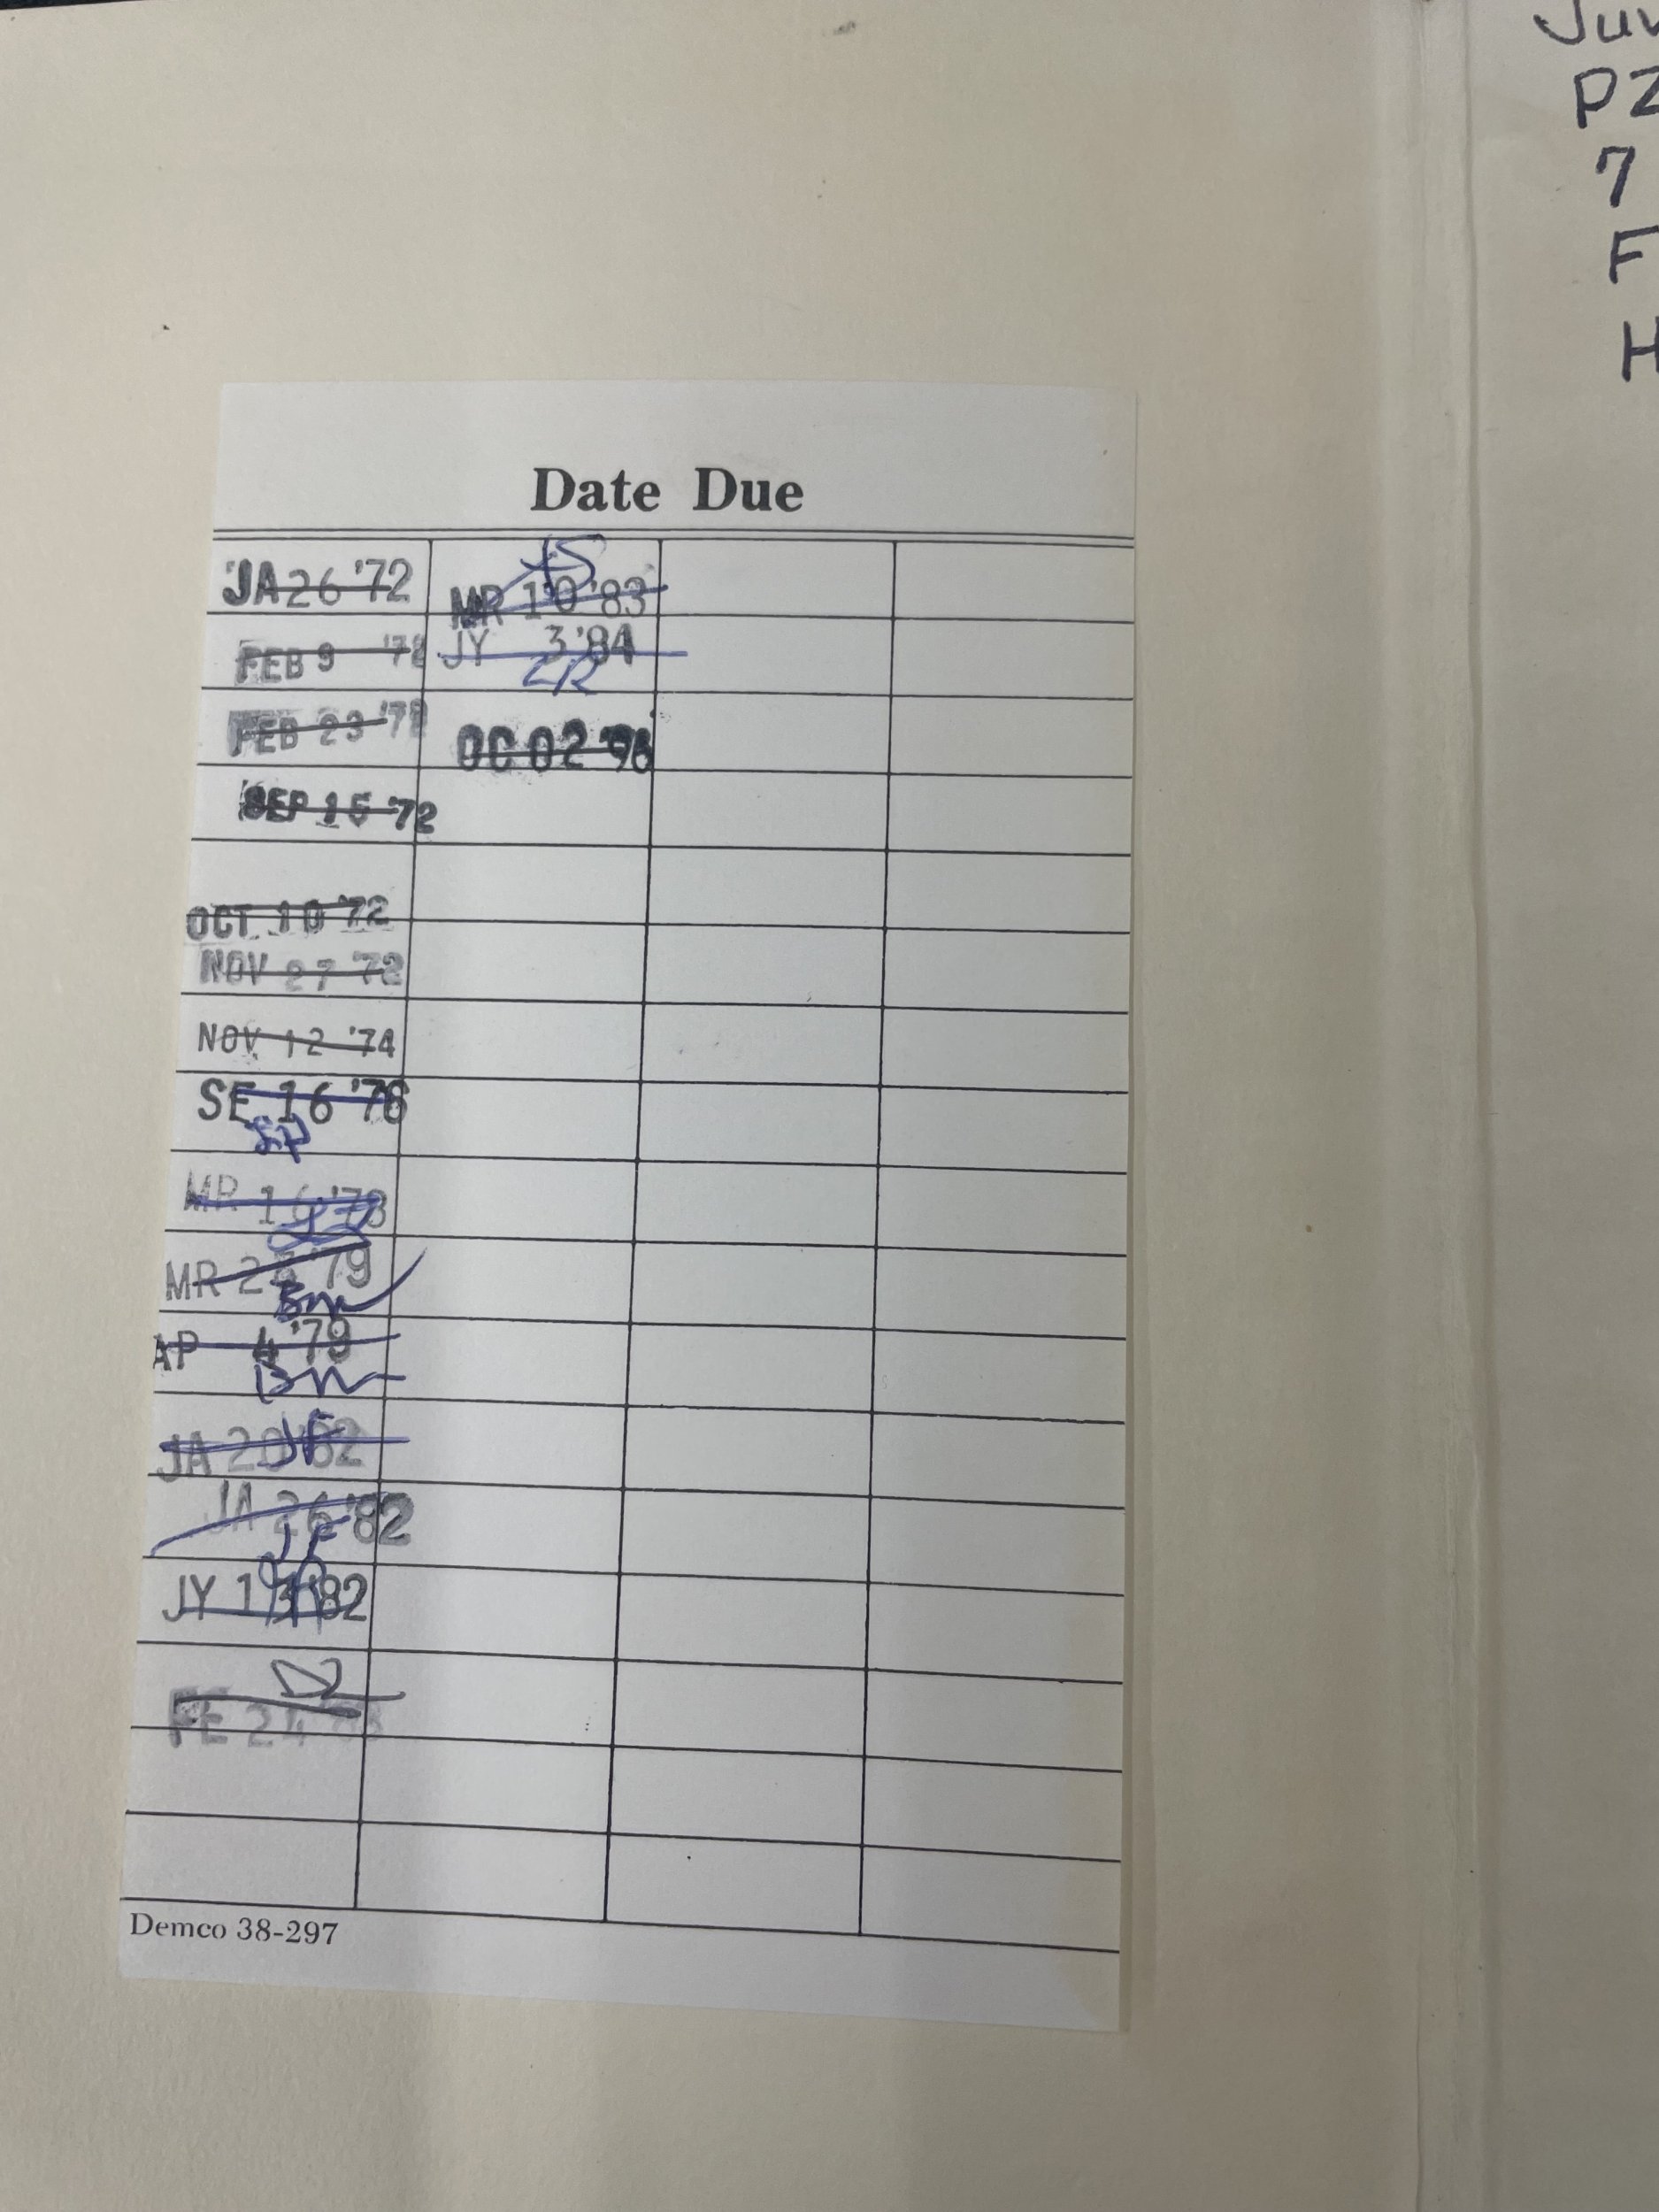 Date Due
JA 26 '72
FEB 9 '72
FEB 23 '72
SEP 15 '72
OCT 10 '72
NOV 27 '72
NOV 12 '74
SE 16 '76
MR 16 '78
MR 28 '79
Bm
AP 4 '79
Bm
JA 20 '82
JF
JA 26 '82
JF
JY 13 '82
FE 24 '83
MR 10 '83
JY 3 '84
OC 02 '96
Demco 38-297
Juv
PZ
7
F
H